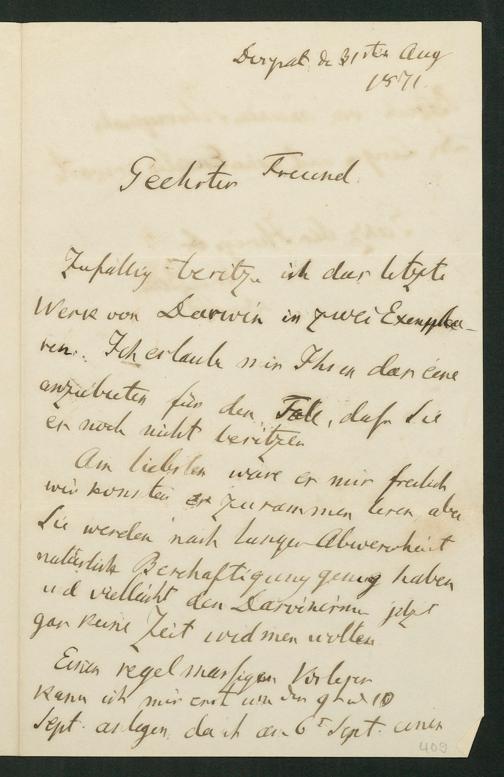 Dorpat d. 31sten Aug
1871.
Geehrter Freund.
Zufällig besitze ich das letzte
Werk von Darwin in zwei Exempla-
ren. Ich erlaube mir Ihnen das eine
anzubieten für den Fall, dass Sie
es noch nicht besitzen
Am liebsten wäre es mir freilich
wir könnten es zusammen lesen aber
Sie werden nach langer Abwesenheit
natürlich Beschäftigung genug haben
und vielleicht dem Darvinismus jetzt
gar keine Zeit widmen wollen
Einen regelmässigen Vorleser
kann ich mir erst um den 10
Sept. anlegen, da ich am 6t Sept. einen
409